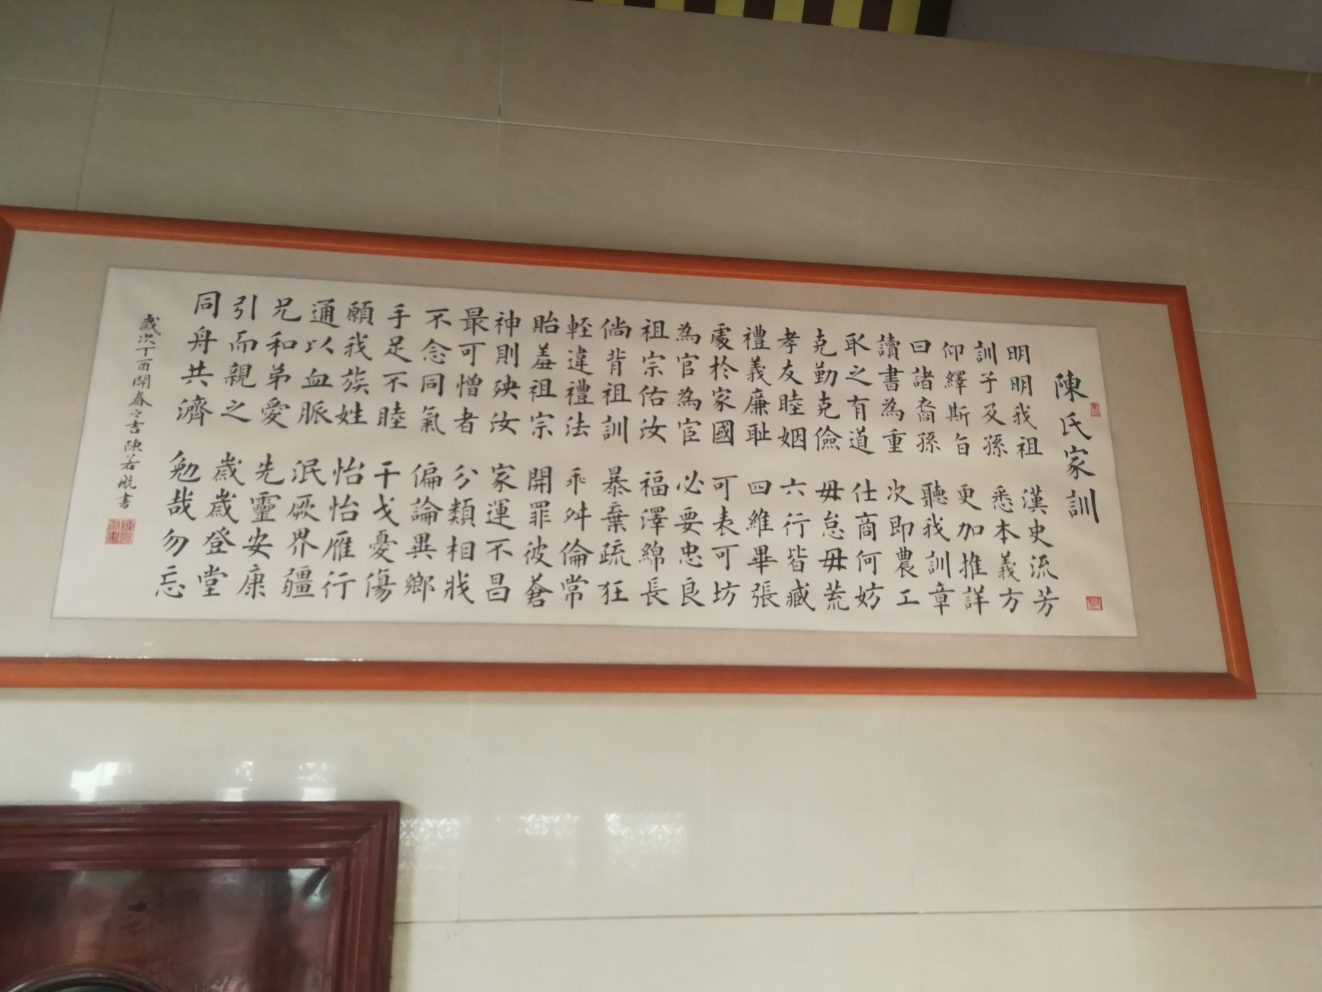 陳氏家訓
明明我祖 漢史流芳
訓子及孫 悉本義方
仰繹斯旨 更加推詳
曰諸裔孫 聽我訓章
讀書為重 次即農工
取之有道 仕商何妨
克勤克儉 毋怠毋荒
孝友睦姻 六行皆臧
禮義廉恥 四維畢張
處於家國 可表可坊
為官為宦 必要忠良
祖宗佑汝 福澤綿長
倘背祖訓 暴棄疏狂
輕違禮法 乖舛倫常
貽羞祖宗 開罪彼蒼
神則殃汝 家運不昌
最可憎者 分類相戕
不念同氣 偏論異鄉
手足不睦 干戈憂傷
願我族姓 怡怡雁行
通以血脈 泯厥界疆
兄和弟愛 先靈安康
引而親之 歲歲登堂
同舟共濟 勉哉勿忘
歲次丁酉開春之吉陳若航書